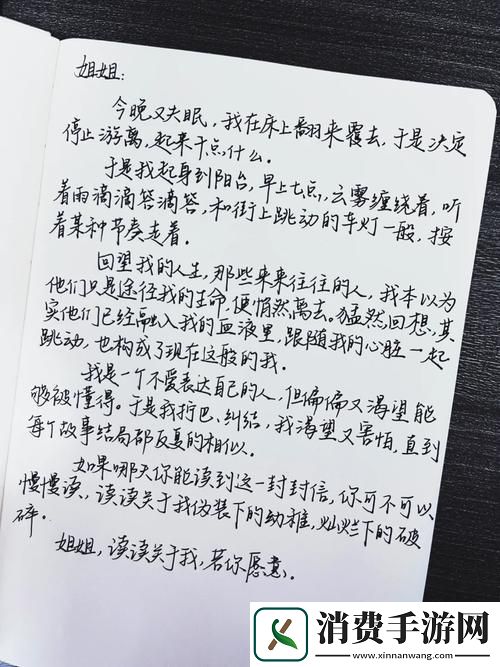 姐姐：
今晚又失眠，我在床上翻来覆去，于是决定
停止游离，起来干点什么。
于是我起身到阳台，早上七点，云雾缠绕着，听
着雨滴滴答滴答，和街上跳动的车灯一般，按
着某种节奏走着。
回望我的人生，那些来来往往的人，我本以为
他们只是途径我的生命，便悄然离去。猛然回想，其
实他们已经融入我的血液里，跟随我的心脏一起
跳动，也构成了现在这般的我。
我是一个不爱表达自己的人，但偏偏又渴望能
够被懂得。于是我拧巴、纠结，我渴望又害怕，直到
每个故事结局都反复的相似。
如果哪天你能读到这一封封信，你可不可以
慢慢读，读读关于我伪装下的幼稚，灿烂下的破
碎。
姐姐，读读关于我，若你愿意。
消费手游网
www.xinnanwang.com